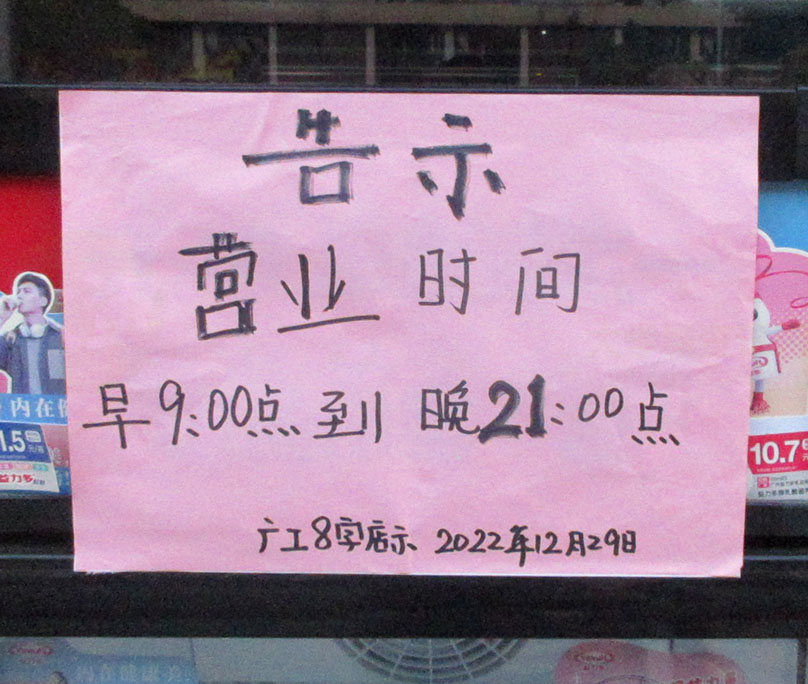 告示
营业时间
早9:00点到晚21:00点
广工8字店示 2022年12月29日
内在
1.5
益力多
10.7